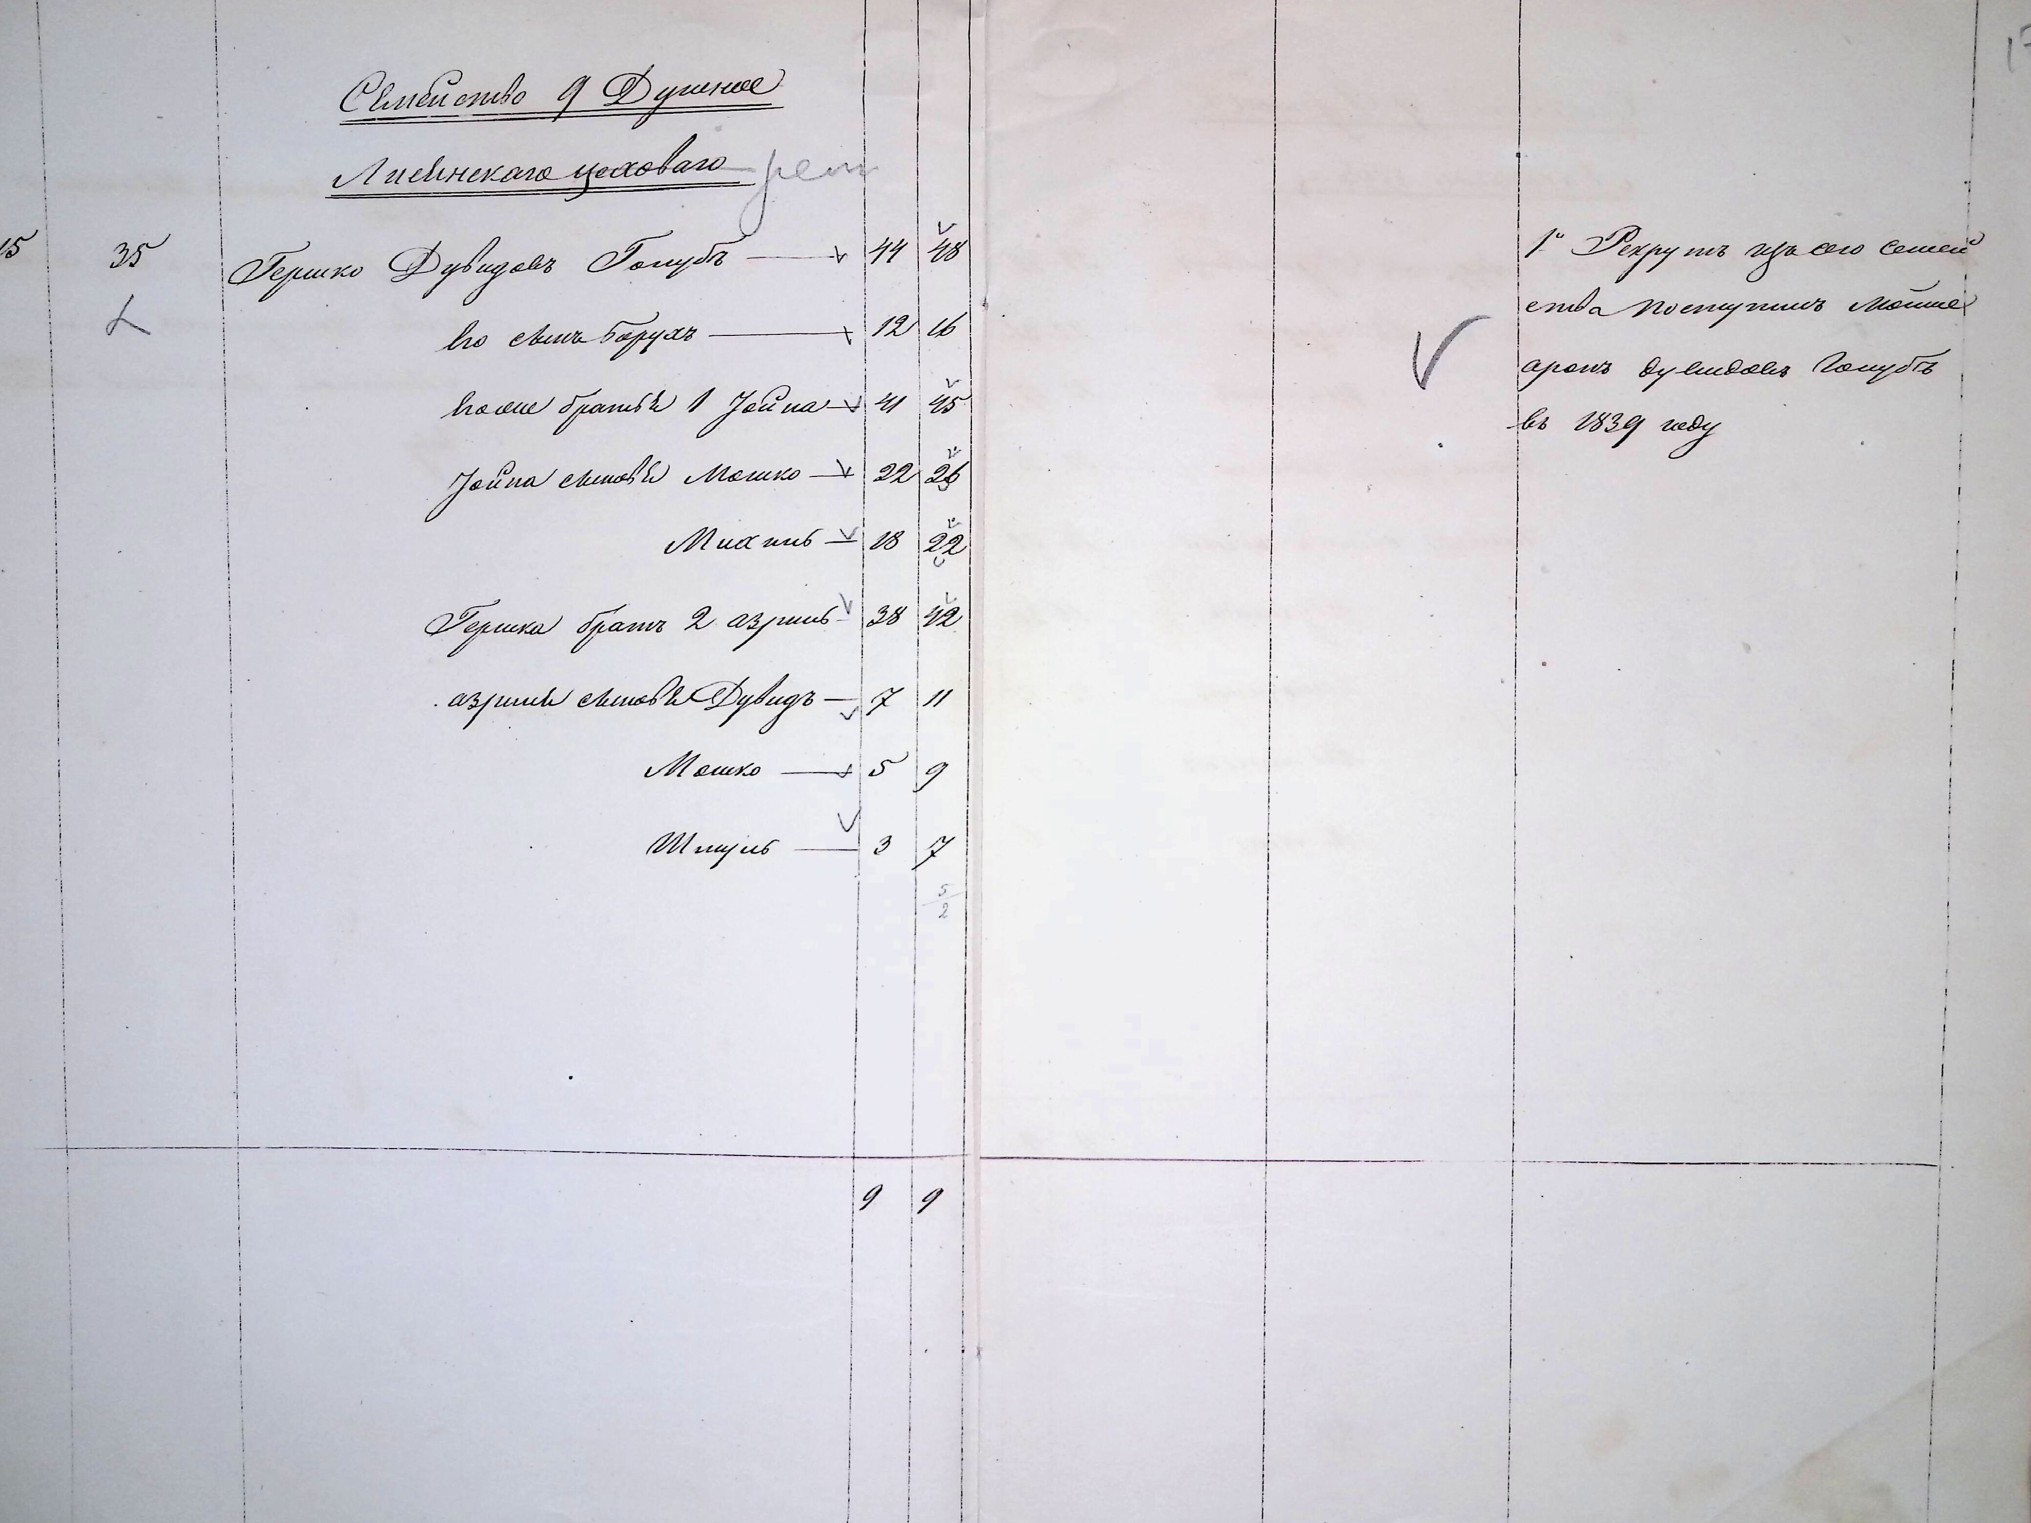 Семейство 9 Душное
цеховаго
15 35 Гершко Дувидовъ Голубъ 44 48
Его сынъ Борухъ 12 16
Его же братья 1 Іойна 41 45
Іойна сыновья Мошко 22 26
Михель 18 22
Гершка братъ 2 Азриль 38 42
Азриля сыновья Дувидъ 7 11
Мошко 5 9
Шмуль 3 7
5
2
9 9
1й Рекрутъ изъ сего семей
ства поступилъ Мойше
аронъ Дувидовъ Голубъ
въ 1839 году